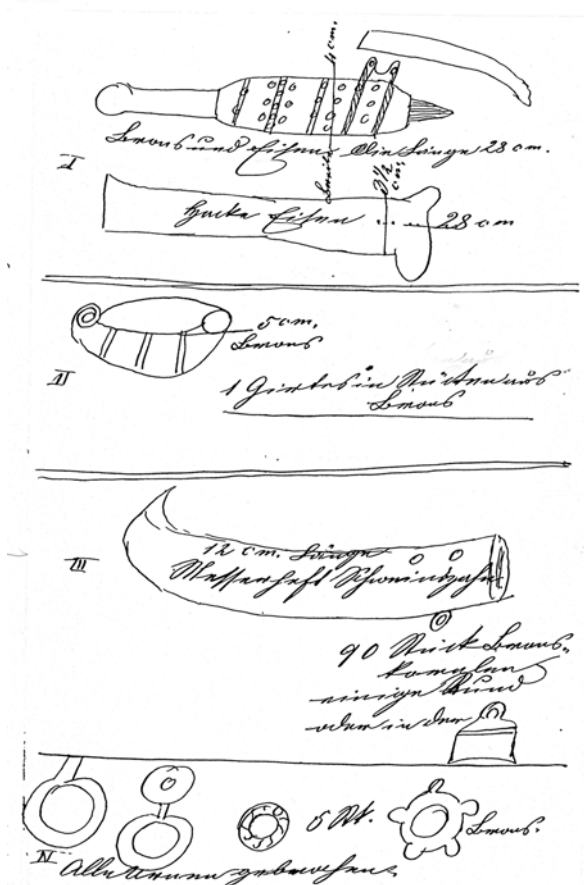 4 cm.
Brons und Eisen, Die Länge 28 cm.
I
Breite
3 1/2
cm.
Hacke Eisen 28 cm
5 cm.
Brons
II
1 Girtes in Stücken aus
Brons
III
12 cm. Länge
Messerheft Schweindzahn
90 Stück Brons-
koralen
einige Rund
oder in der
5 St. Brons.
IV
Alle Urnen gebrochen.